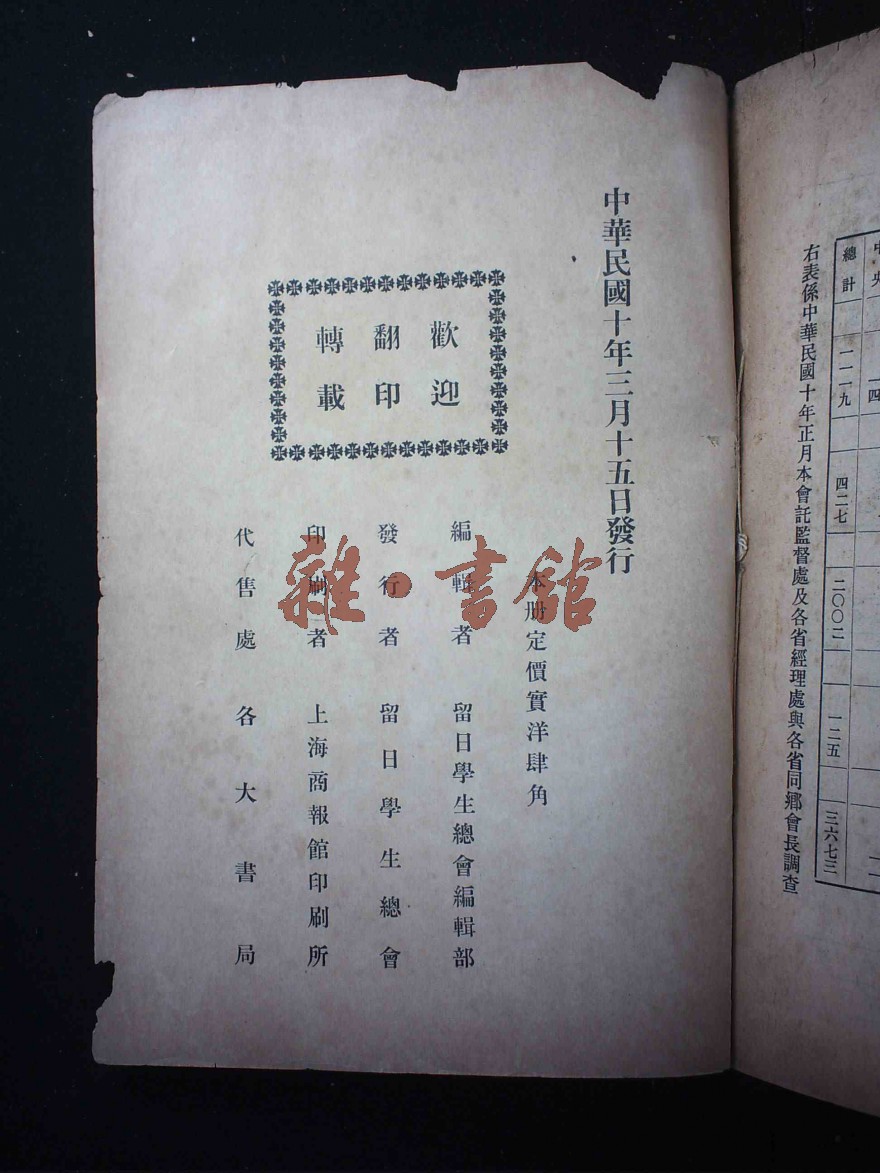 中央
四
總計
一一一九
四二七
二〇〇二
一二五
三六七三
右表係中華民國十年正月本會託監督處及各省經理處與各省同鄉會長調查
中華民國十年三月十五日發行
歡迎
翻印
轉載
本册定價實洋肆角
編輯者 留日學生總會編輯部
發行者 留日學生總會
印刷者 上海商報館印刷所
代售處 各大書局
雜·書館